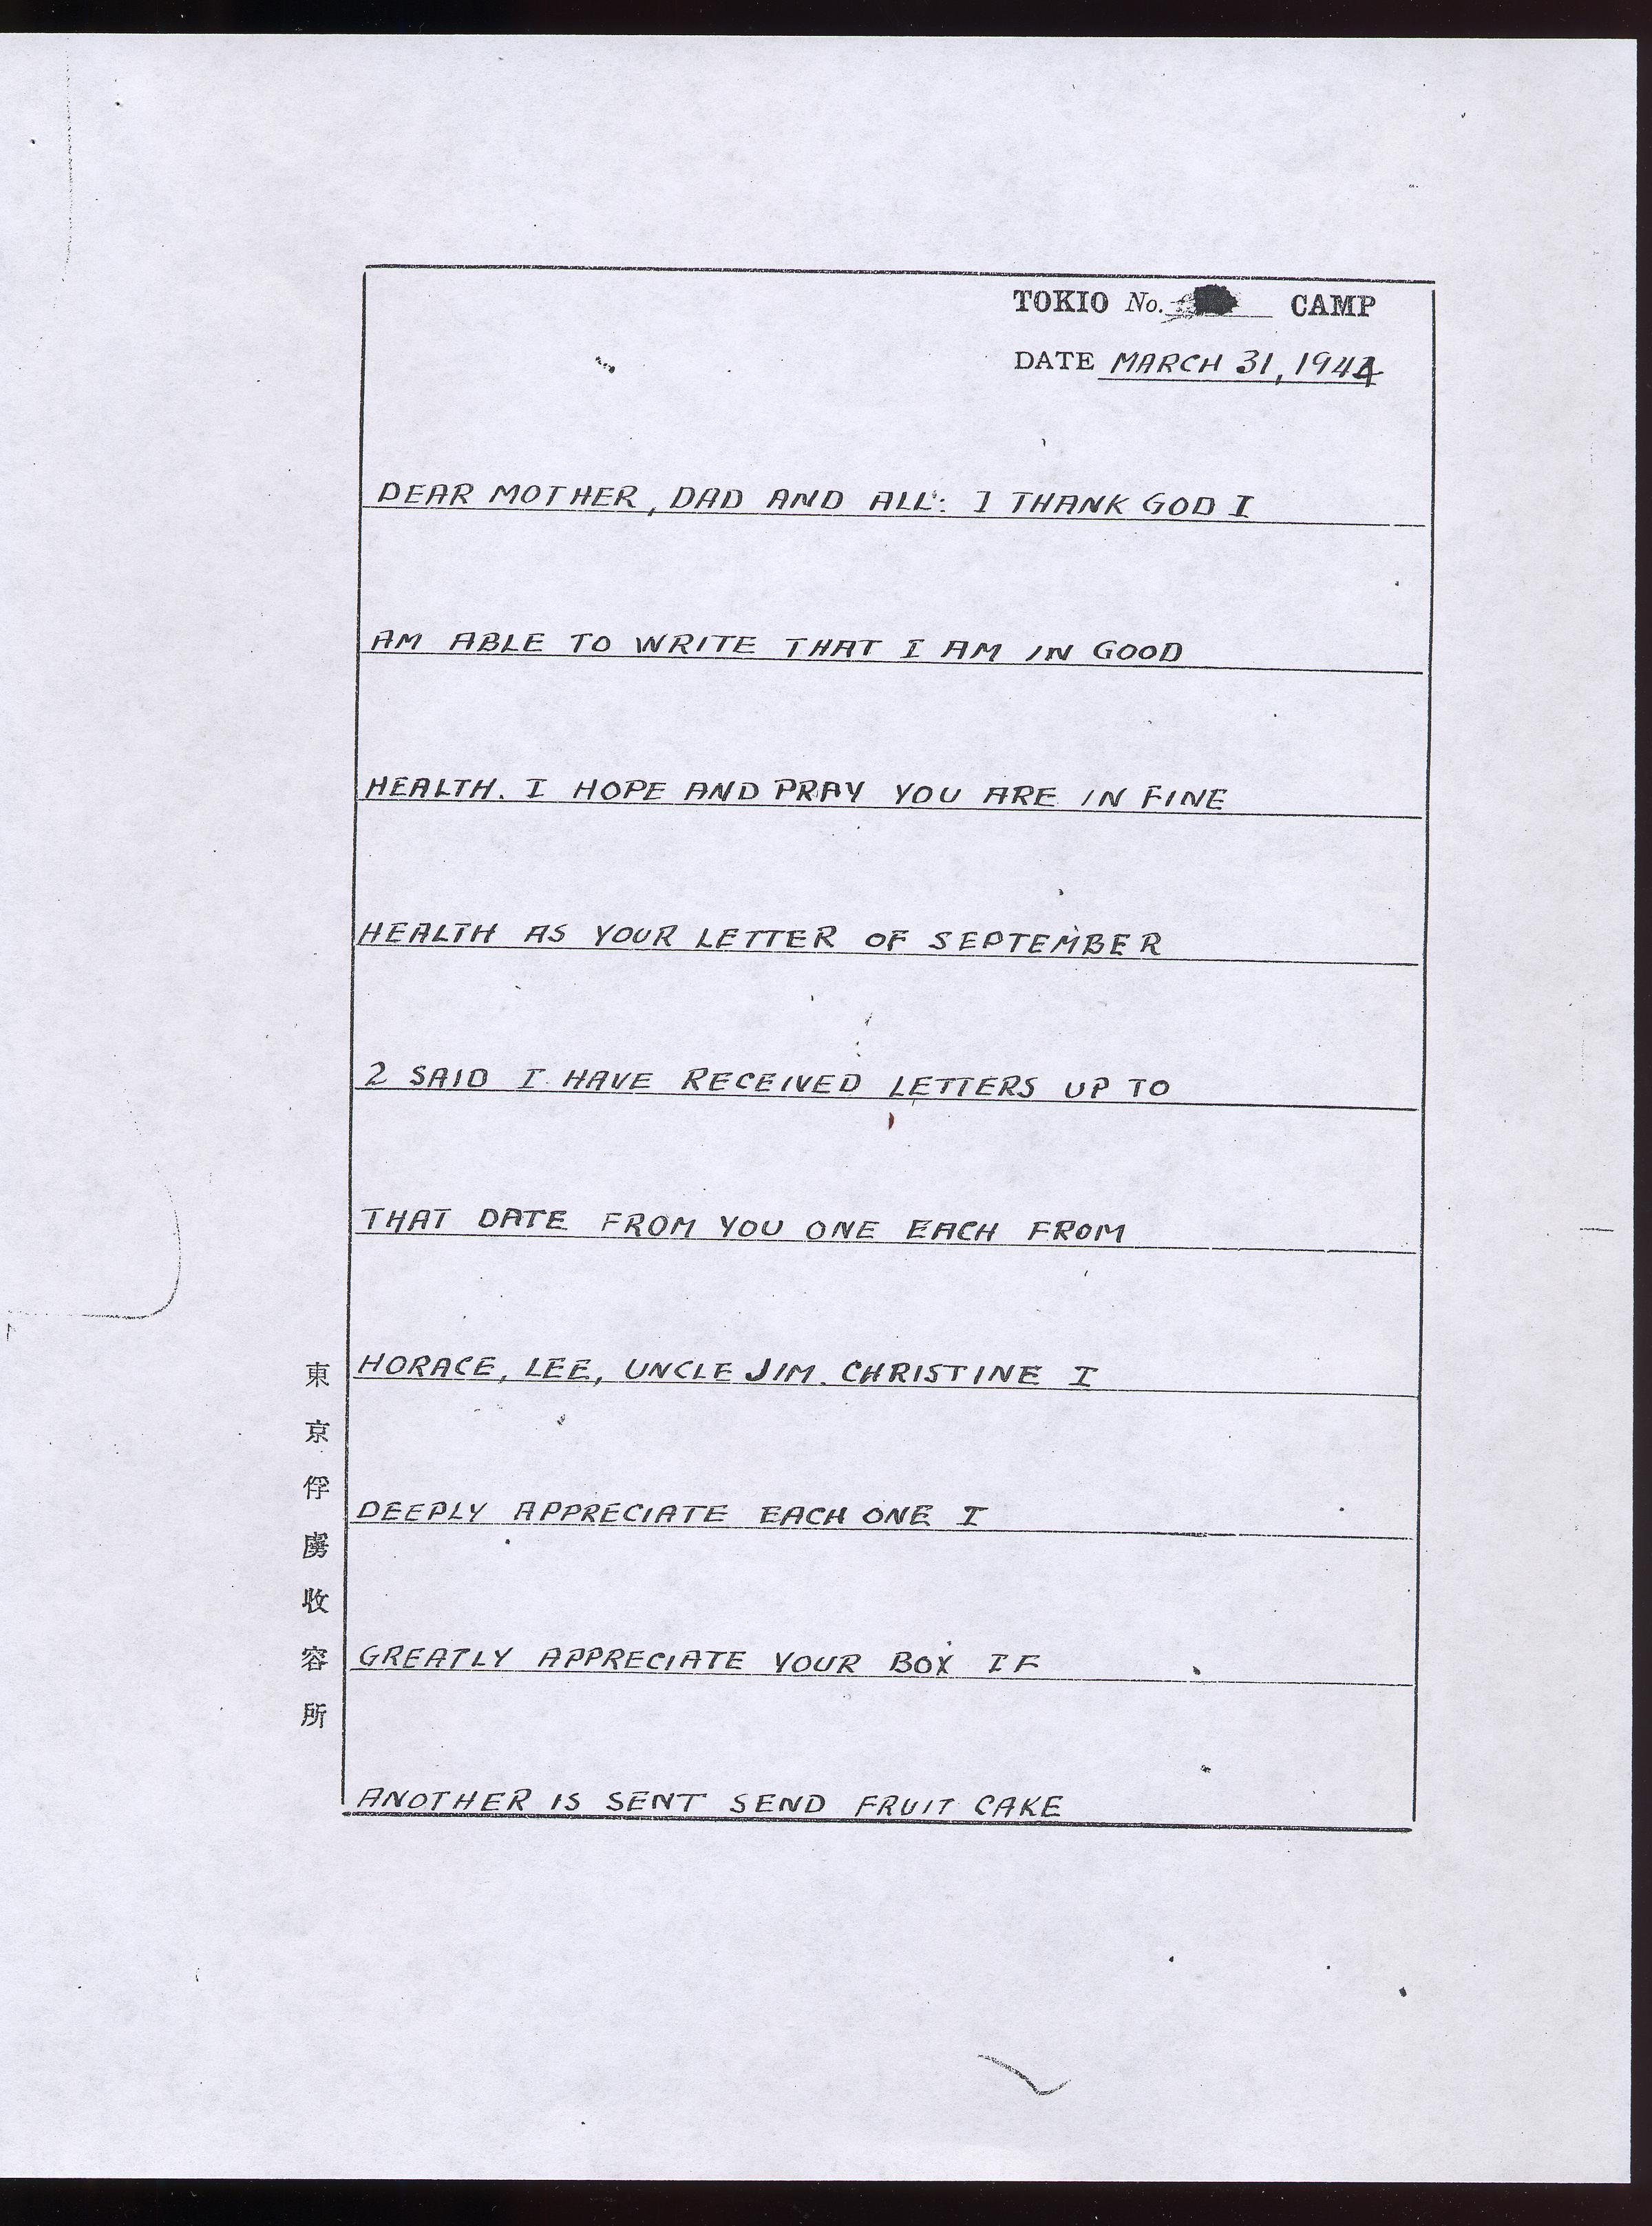 TOKIO No. CAMP
DATE MARCH 31, 1944
DEAR MOTHER, DAD AND ALL: I THANK GOD I
AM ABLE TO WRITE THAT I AM IN GOOD
HEALTH. I HOPE AND PRAY YOU ARE IN FINE
HEALTH AS YOUR LETTER OF SEPTEMBER
2 SAID I HAVE RECEIVED LETTERS UP TO
THAT DATE FROM YOU ONE EACH FROM
HORACE, LEE, UNCLE JIM. CHRISTINE I
DEEPLY APPRECIATE EACH ONE I
GREATLY APPRECIATE YOUR BOX IF
ANOTHER IS SENT SEND FRUIT CAKE
東京俘虜收容所